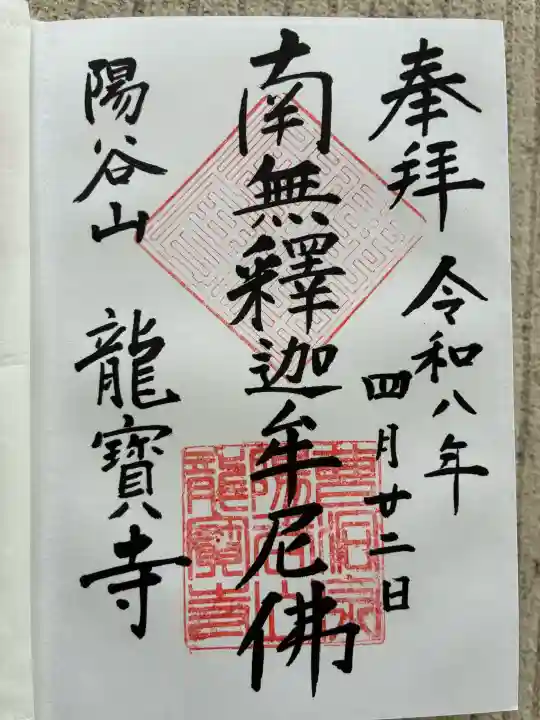 奉拝 令和八年
四月廿二日
南無釋迦牟尼佛
陽谷山 龍寶寺
曹洞宗
陽谷山
龍寶寺